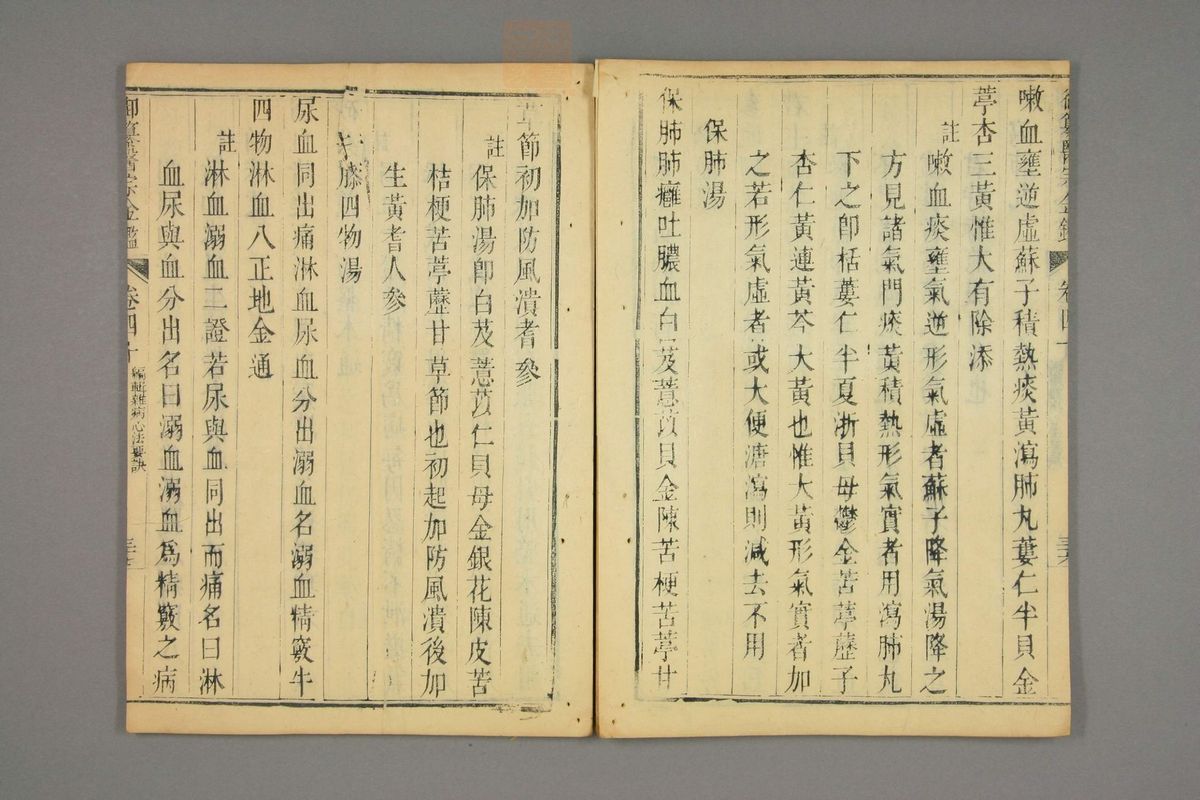 御纂醫宗金鑑 卷四十
嗽血壅逆虛蘇子積熱痰黃瀉肺丸蔞仁半貝金
葶杏三黃惟大有除添
註
嗽血痰壅氣逆形氣虛者蘇子降氣湯降之
方見諸氣門痰黃積熱形氣實者用瀉肺丸
下之卽栝蔞仁半夏浙貝母鬱金苦葶藶子
杏仁黃連黃芩大黃也惟大黃形氣實者加
之若形氣虛者或大便溏瀉則減去不用
保肺湯
保肺肺癰吐膿血白芨薏苡貝金陳苦梗苦葶甘
草節初加防風潰耆參
註
保肺湯卽白芨薏苡仁貝母金銀花陳皮苦
桔梗苦葶藶甘草節也初起加防風潰後加
生黃耆人參
牛膝四物湯
尿血同出痛淋血尿血分出溺血名溺血精竅牛
四物淋血八正地金通
註
淋血溺血二證若尿與血同出而痛名曰淋
血尿與血分出名曰溺血溺血爲精竅之病
御纂醫宗金鑑 卷四十 編輯雜病心法要訣